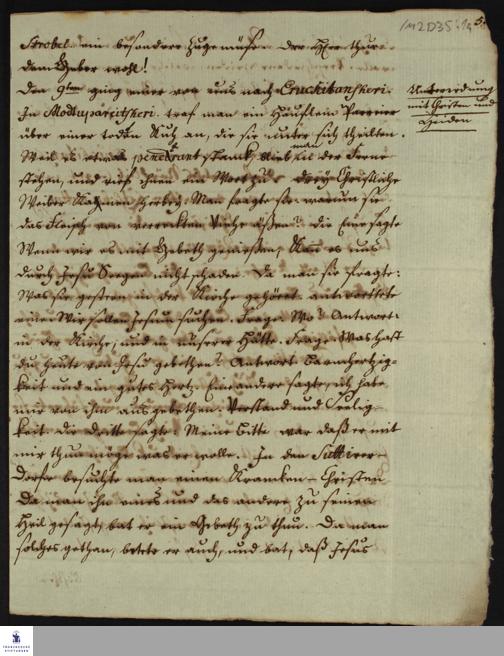 1M2 D35 : 1a
5.
Strobel ein besondere Zugemüse. Der Herr thue
dem Geber wohl!
Den 9ten ging einer von uns nach Cruckitanscheri.
In Mottuparcitscheri traf man ein Häuflein Parreier
über einer todten Kuh an, die sie unter sich theilten.
Weil es etwas penetrant stanck, blieb man in der Ferne
stehen, und rief ihnen ein Wort zu. drey Christliche
Weiber kamen herbey. Man fragte sie: warum sie
das Fleisch von verreckten Viehe äßen? die Eine sagte
Wenn wir es mit Gebeth genießen, kan es uns
durch Jesu Seegen nicht schaden. Da man sie fragte:
Was sie gestern in der Kirche gehöret antwortete
eine: Wir sollen Jesum suchen. Frage. Wo? Antwort.
in der Kirche, und in unserer Hütte. Frage. Was hast
du heute von Jesu gebethen? Antwort Barmhertzig-
keit und ein gutes Hertz. Eine andere sagte, ich habe
mir von ihm ausgebethen: Verstand und Seelig-
keit. die dritte sagte: Meine Bitte war daß er mit
mir thun möge was er wolle. In den
Dorfe besuchte man einen Krancken Christen
Da man ihm eines und das andere zu seinem
Heil gesagt, bat er ein Gebeth zu thun. Da man
solches gethan, betete er auch, und bat, daß Jesus
Unterredung
mit Christen und
Heiden
FRANCKESCHE
STIFTUNGEN